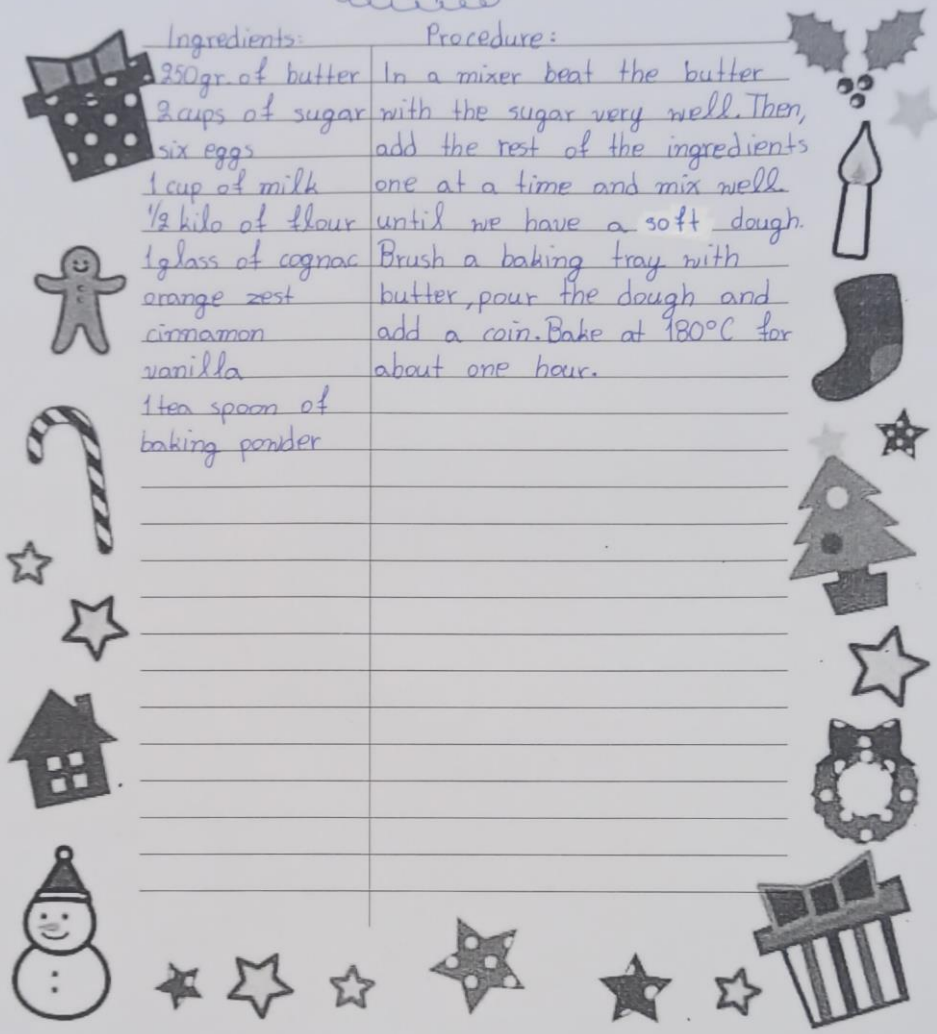 Ingredients:
250gr. of butter
2 cups of sugar
six eggs
1 cup of milk
1/2 kilo of flour
1 glass of cognac
orange zest
cinnamon
vanilla
1 tea spoon of
baking powder
Procedure:
In a mixer beat the butter
with the sugar very well. Then,
add the rest of the ingredients
one at a time and mix well
until we have a soft dough.
Brush a baking tray with
butter, pour the dough and
add a coin. Bake at 180°C for
about one hour.